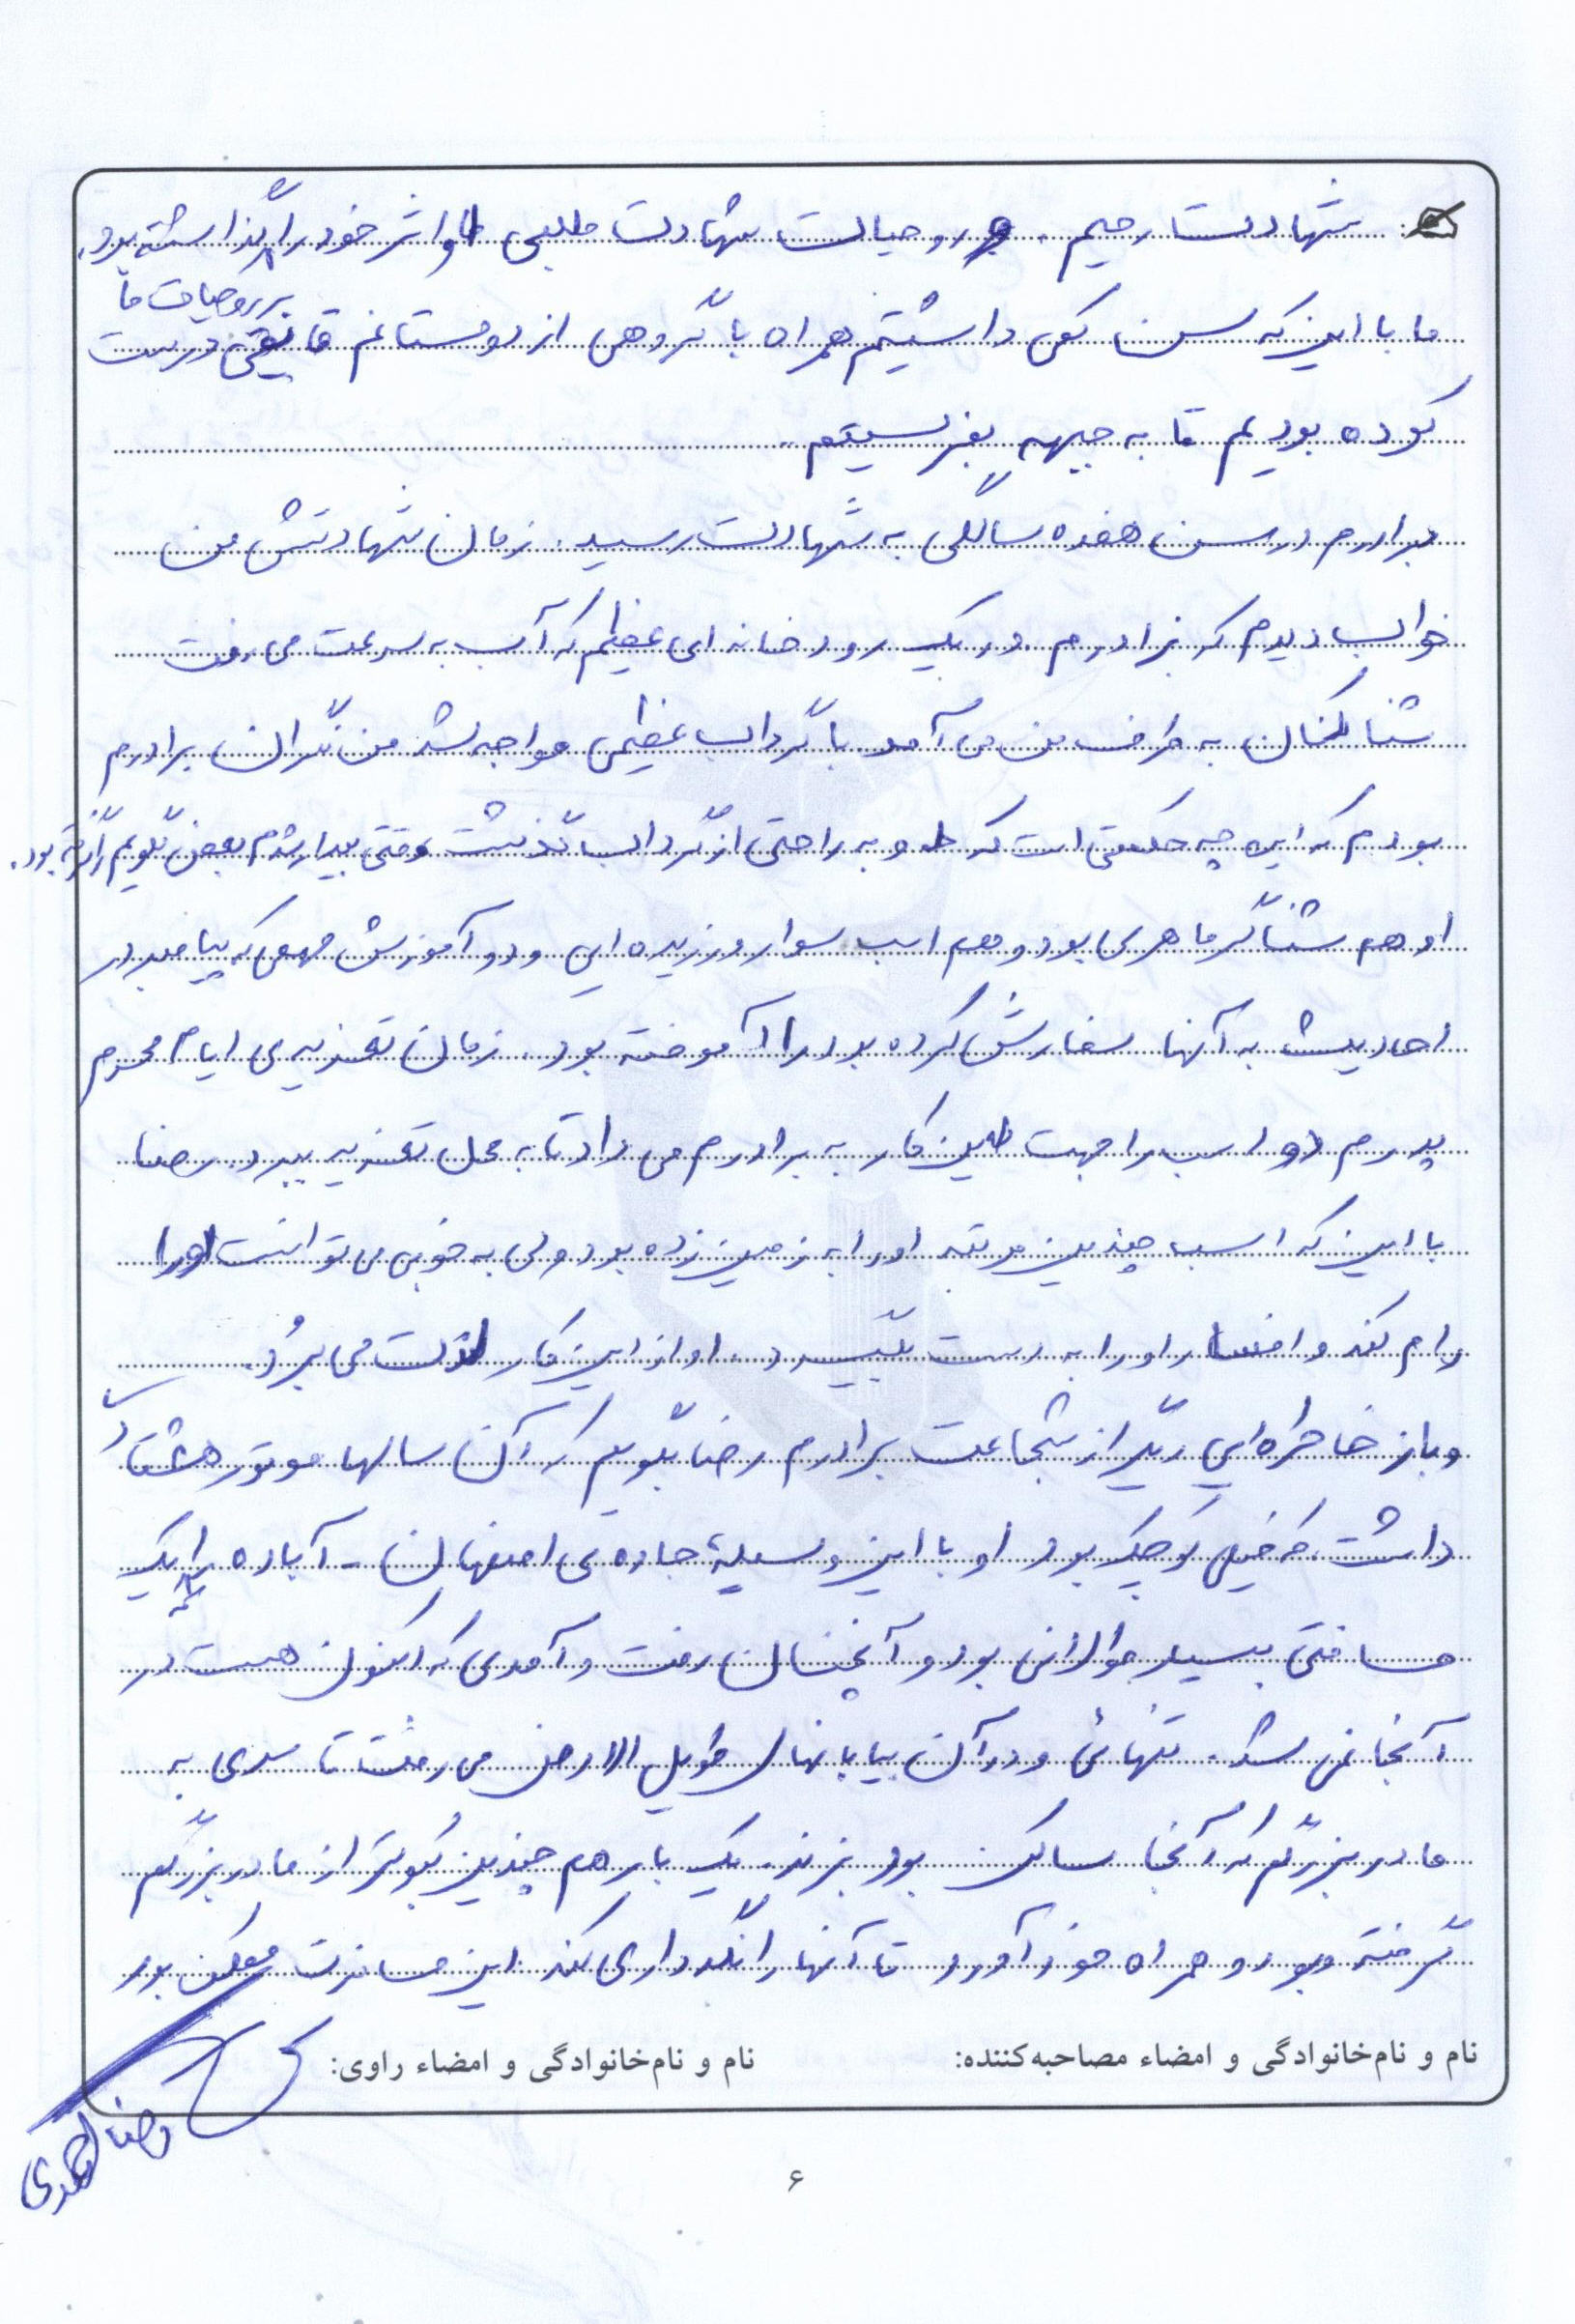 شهادت رحیم. و روحیات شهادت طلبی او اثر خود را بر روحیات ما گذاشته بود.
ما با این که سن کمی داشتیم همراه با گروهی از دوستانم قایقی درست
کرده بودیم تا به جبهه بفرستیم.
برادرم در سن هفده سالگی به شهادت رسید. زمان شهادتش من
خواب دیدم که برادرم در یک رودخانه ای عظیم که آب به سرعت می رفت
شنا کنان به طرف من می آمد با گرداب عظیمی مواجه شد من نگران برادرم
بودم که این چه حکمتی است که او به راحتی از گرداب گذشت وقتی بیدار شدم بعض گلویم را گرفته بود.
او هم شناگر ماهری بود و هم اسب سوار ورزیده ایی و دو آموزش مهمی که پیامبر در
احادیث به آنها سفارش کرده بود را آموخته بود. زمان تعزیه ی ایام محرم
پدرم دو اسب را جهت این کار به برادرم می داد تا به محل تعزیه ببرد. رضا
با این که اسب چندین مرتبه او را به زمین زده بود ولی به خوبی می توانست او را
رام کند و افسار او را به دست بگیرد. او از این کار لذت می بُرد.
و باز خاطره ایی دیگر از شجاعت برادرم رضا بگویم که آن سالها موتور هشتاد
داشت که خیلی کوچک بود او با این وسیله جاده ی اصفهان - آباده را که یک
مسافتی بسیار طولانی بود و آنچنان رفت و آمدی که اکنون هست در
آنجا نمی شد. تنهائی و در آن بیابانهای طویل الارض می رفت تا سری به
مادر بزرگم که آنجا ساکن بود بزند. یک بار هم چندین کبوتر از مادر بزرگم
گرفته بود و همراه خود آورد تا آنها را نگهداری کند این مسافرت ممکن بود
نام و نام‌خانوادگی و امضاء مصاحبه‌کننده: نام و نام‌خانوادگی و امضاء راوی:
۶